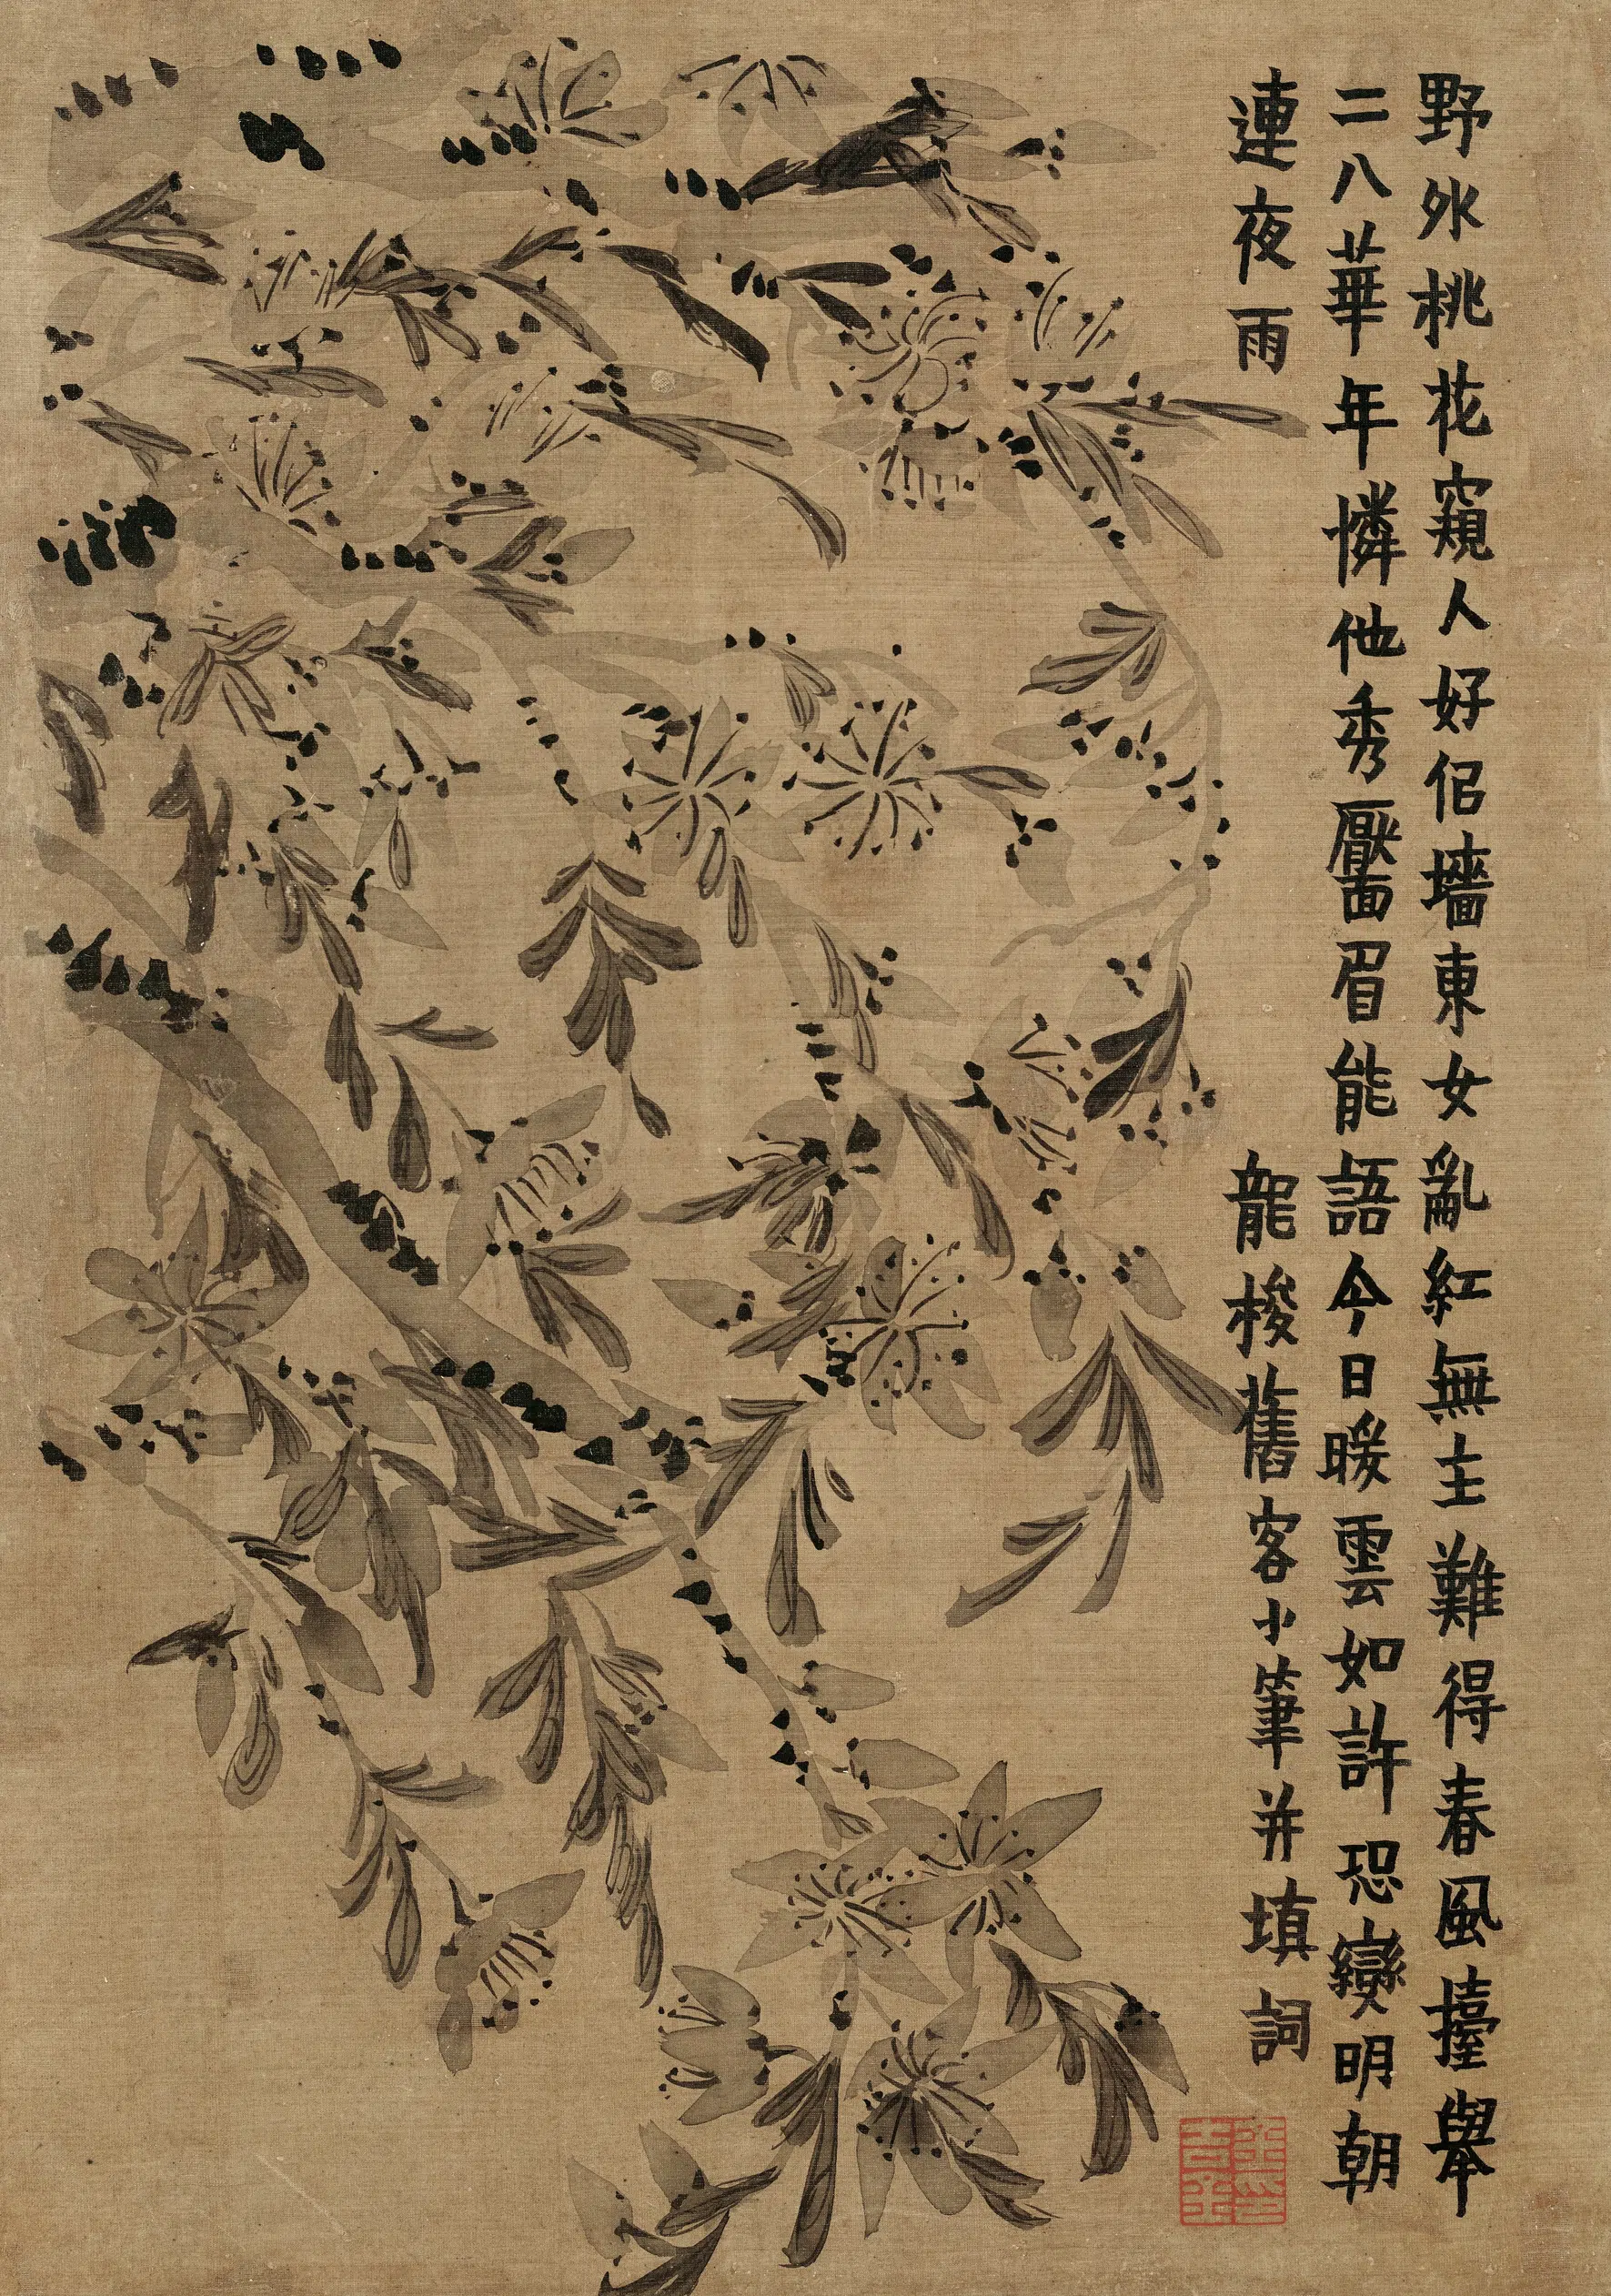 野外桃花窺人好侶墻東女亂紅無主難得春風擡舉
二八華年憐他秀靨眉能語今日暖雲如許恐變明朝
連夜雨
龍梭舊客小筆并填詞